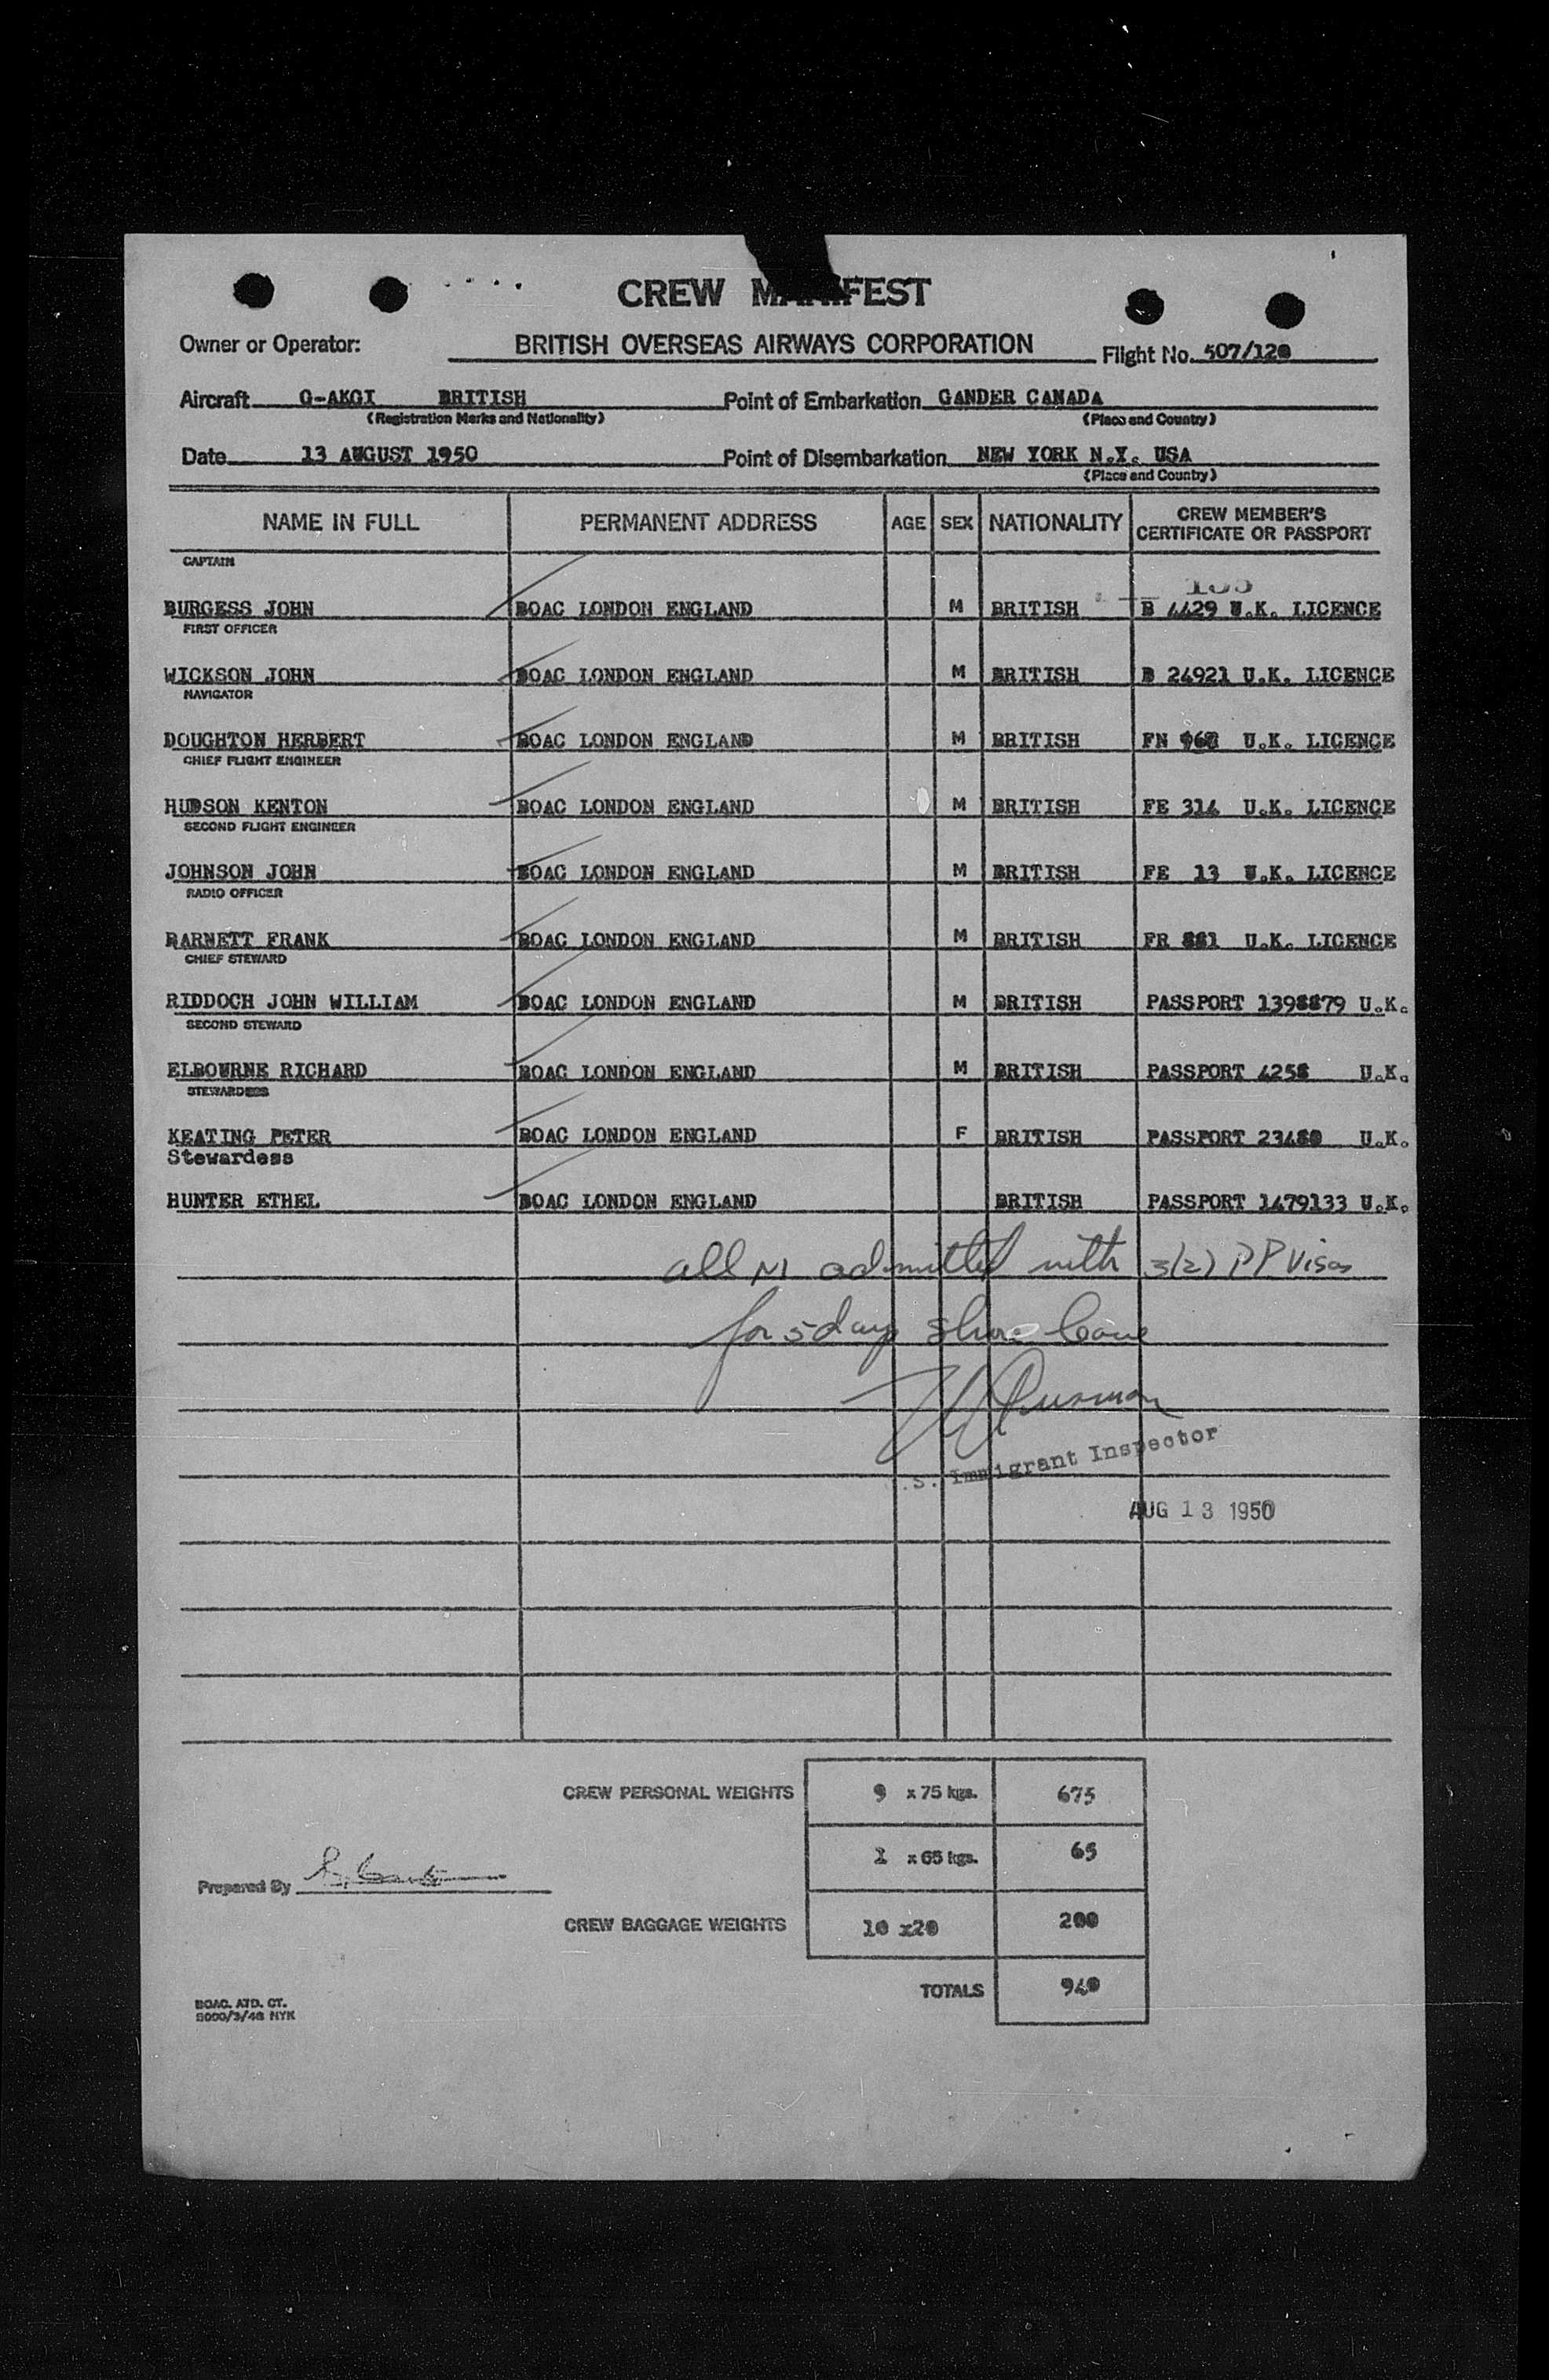 CREW MANIFEST
Owner or Operator: BRITISH OVERSEAS AIRWAYS CORPORATION Flight No. 507/120
Aircraft G-AKGI BRITISH Point of Embarkation GANDER CANADA
(Registration Marks and Nationality) (Place and Country)
Date 13 AUGUST 1950 Point of Disembarkation NEW YORK N.Y. USA
(Place and Country)
NAME IN FULL PERMANENT ADDRESS AGE SEX NATIONALITY CREW MEMBER'S CERTIFICATE OR PASSPORT
CAPTAIN
BURGESS JOHN BOAC LONDON ENGLAND M BRITISH B 4429 U.K. LICENCE
FIRST OFFICER
WICKSON JOHN BOAC LONDON ENGLAND M BRITISH B 24921 U.K. LICENCE
NAVIGATOR
DOUGHTON HERBERT BOAC LONDON ENGLAND M BRITISH FN U.K. LICENCE
CHIEF FLIGHT ENGINEER
HUDSON KENTON BOAC LONDON ENGLAND M BRITISH FE 314 U.K. LICENCE
SECOND FLIGHT ENGINEER
JOHNSON JOHN BOAC LONDON ENGLAND M BRITISH FE 13 U.K. LICENCE
RADIO OFFICER
BARNETT FRANK BOAC LONDON ENGLAND M BRITISH FR 881 U.K. LICENCE
CHIEF STEWARD
RIDDOCH JOHN WILLIAM BOAC LONDON ENGLAND M BRITISH PASSPORT 1398879 U.K.
SECOND STEWARD
ELBOURNE RICHARD BOAC LONDON ENGLAND M BRITISH PASSPORT 4258 U.K.
STEWARDESS
KEATING PETER BOAC LONDON ENGLAND F BRITISH PASSPORT 23480 U.K.
Stewardess
HUNTER ETHEL BOAC LONDON ENGLAND BRITISH PASSPORT 1479133 U.K.
all NI admitted with 3(2) PP Visas
for 5 days shore leave
.S. Immigrant Inspector
AUG 13 1950
CREW PERSONAL WEIGHTS 9 x 75 kgs. 675
1 x 65 kgs. 65
Prepared By
CREW BAGGAGE WEIGHTS 10 x20 200
TOTALS 940
BOAC. ATD. CT.
5000/3/48 NYK